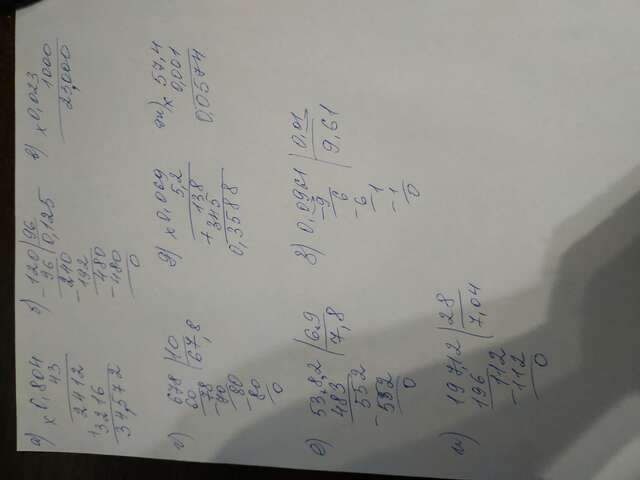 а) × 0,804
43
2412
+ 3216
34,572
б) 120 | 96
- 96 | 0,125
240
- 192
480
- 480
0
в) × 0,023
1000
23,000
г) 678 | 10
60 | 67,8
78
- 70
80
- 80
0
д) × 0,069
5,2
138
+ 345
0,3588
ж) × 57,4
0,001
0,0574
е) 53,8,2 | 6,9
483 | 7,8
552
- 552
0
з) 0,0961 | 0,01
- 9 | 9,61
6
- 6
1
- 1
0
и) 19,712 | 28
196 | 7,04
112
- 112
0